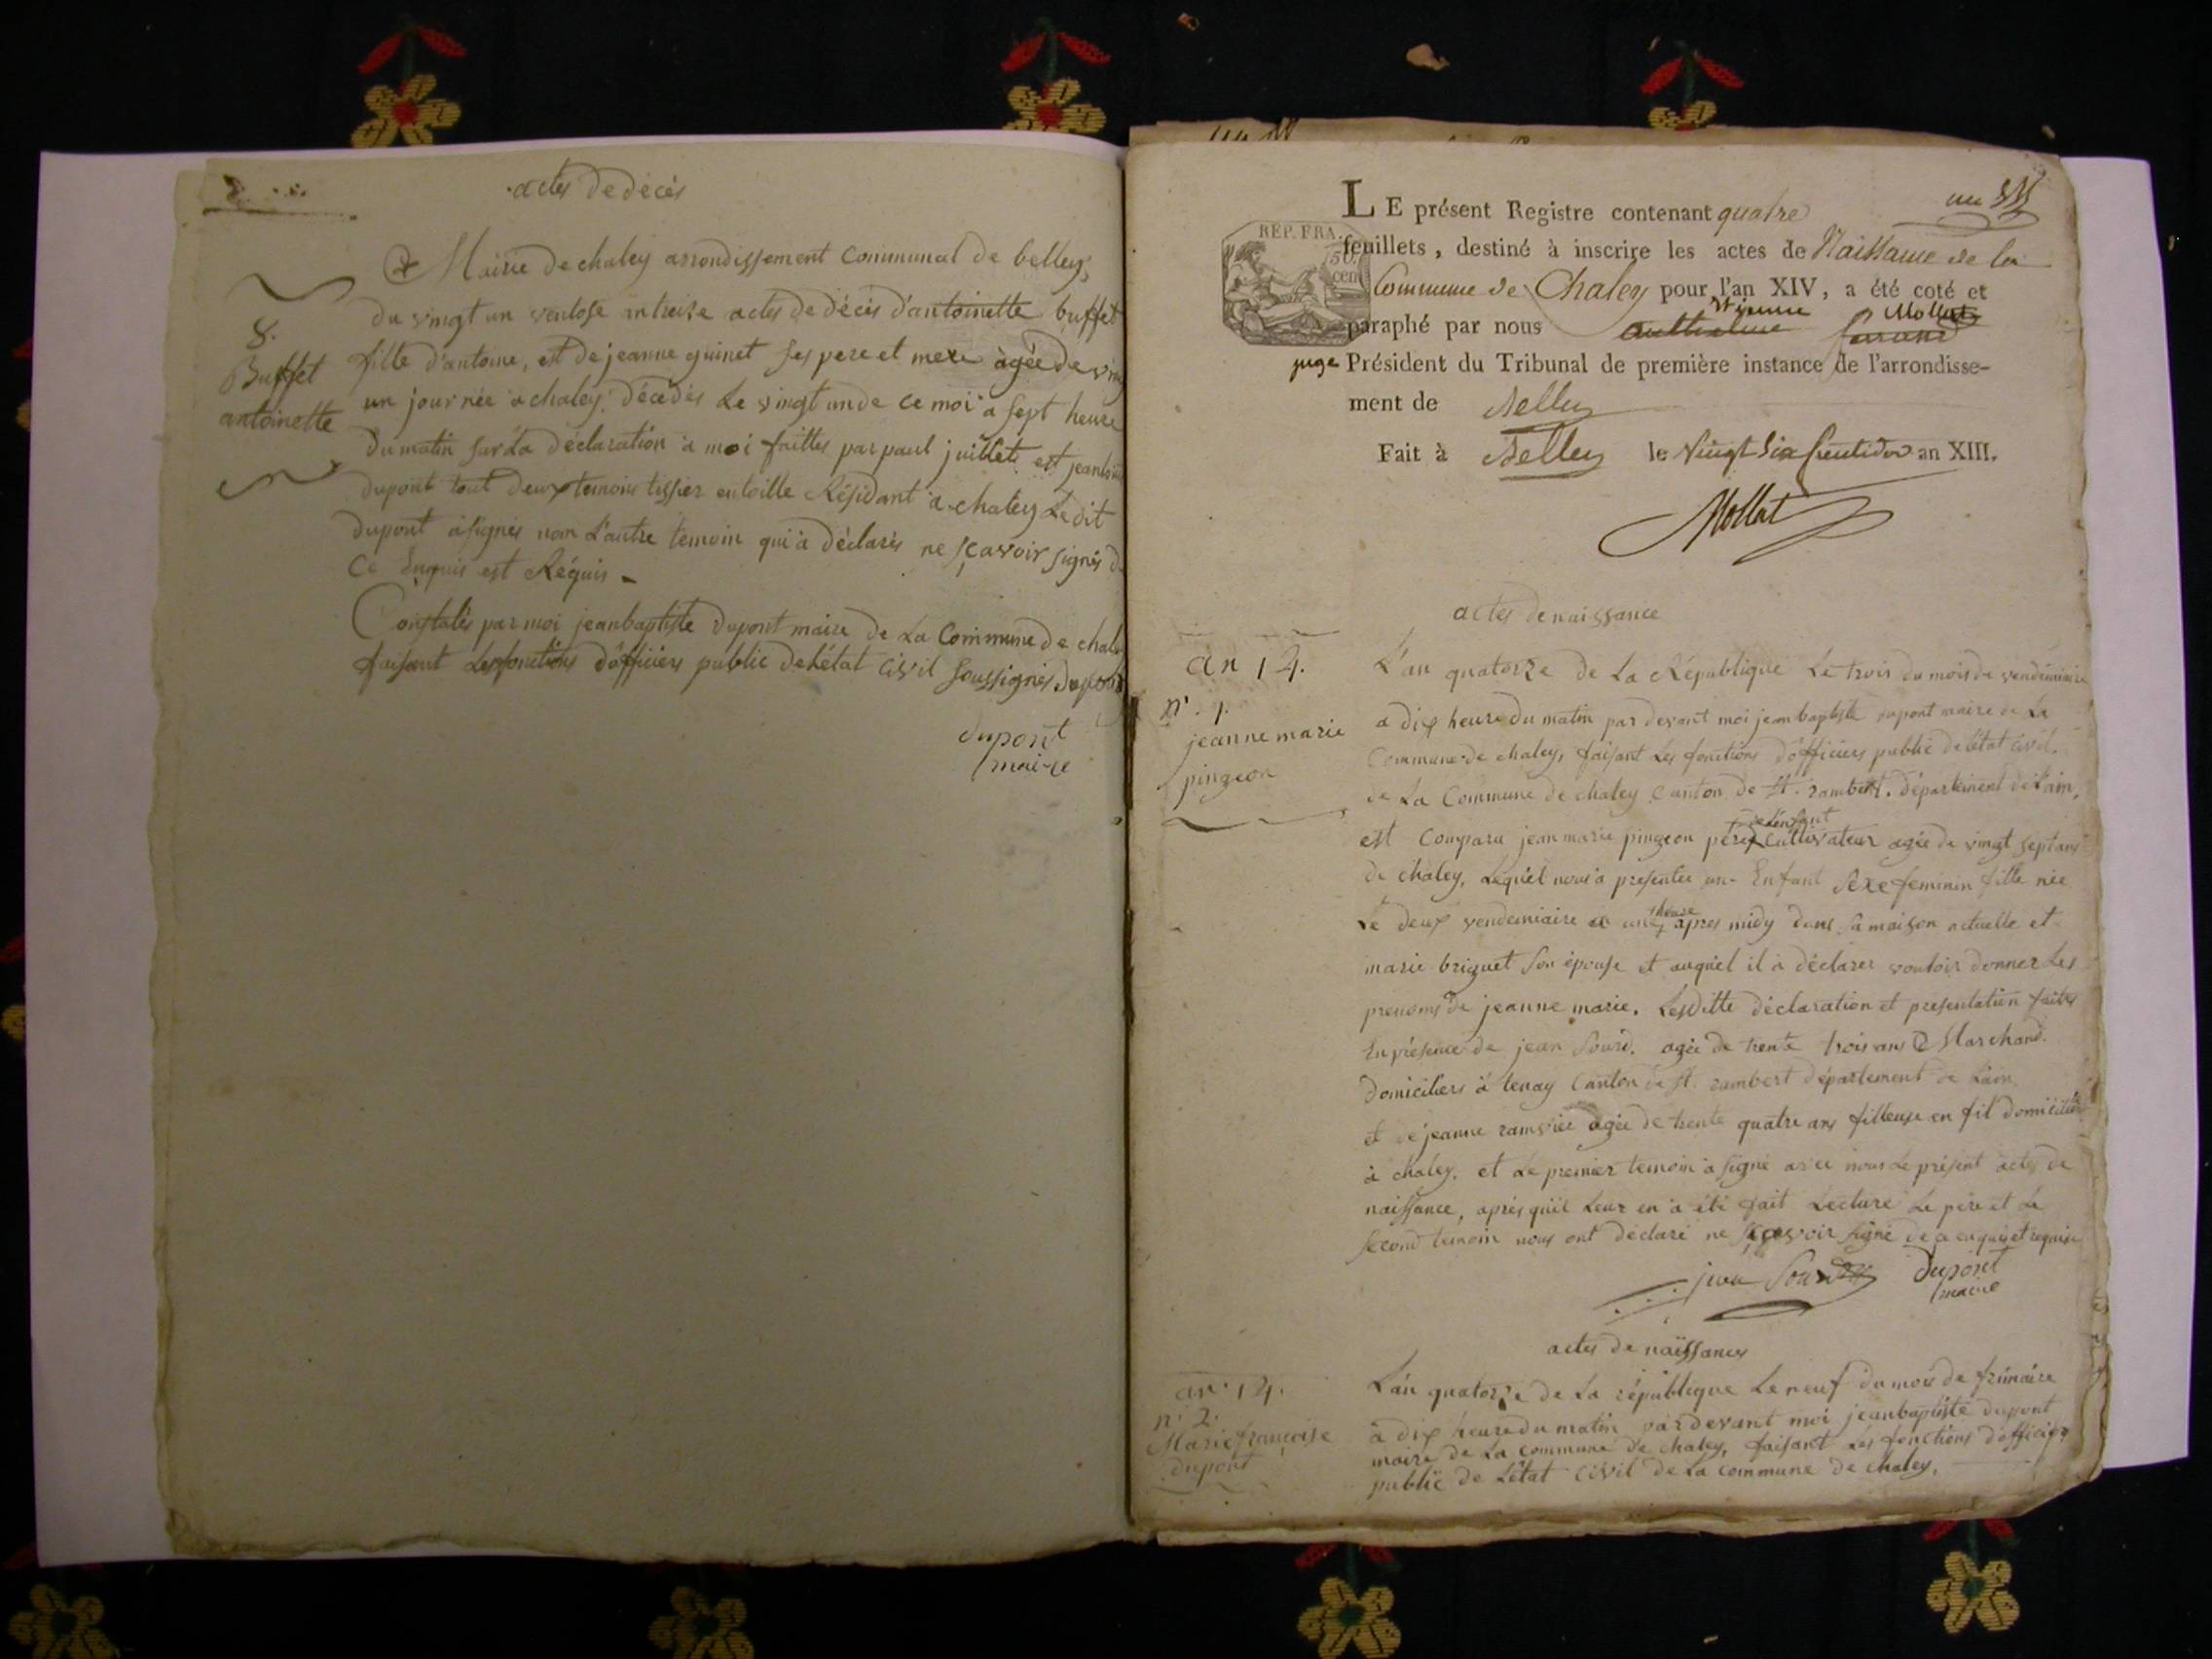 actes de décès
Mairie de chaley arrondissement Communal de belley,
du vingt un ventose an treize actes de décès d'antoinette buffet
8.
Buffet
antoinette
fille d'antoine, est de jeanne guinet ses pere et mere agée de
un jour née a chaley. décédés Le vingt un de ce moi a sept heure
du matin sur La déclaration a moi faittes par paul juillet est
dupont tout deux temoins tissier en toille Résidant a chaley Ledit
dupont a signés non L'autre temoin qui a déclarés ne sçavoir signés
Ce Enquis est Réquis -
Constatés par moi jean baptiste dupont maire de La Commune de
faisant Les fonctions d'officiers public de L'état civil soussignés dupont
dupont
maire
LE présent Registre contenant quatre
feuillets, destiné à inscrire les actes de Naissance de la
REP. FRA.
50
cen
Commune de Chaley pour l'an XIV, a été coté et
paraphé par nous
Mollat
juge Président du Tribunal de première instance de l'arrondisse-
ment de Belley
Fait à Belley le Vingt Six fructidor an XIII.
Mollat
actes de naissance
an 14.
n°. 1.
jeanne marie
pingeon
L'an quatorze de La République Le trois du mois de vendémiaire
a dix heure du matin par devant moi jean baptiste dupont maire de La
Commune de chaley, faisant Les fonctions d'officiers public de l'état civil.
de La Commune de chaley Canton de St. rambert. département de L'ain,
est Comparu jean marie pingeon père de l'enfant cultivateur agée de vingt sept ans
de chaley, Lequel nous a presentée un Enfant Sexe feminin fille née
Le deux vendemiaire a une heure apres midy dans sa maison actuelle et
marie briguet son épouse et auquel il a déclarer vouloir donner Les
prenoms de jeanne marie. Lesditte déclaration et presentation faites
En présence de jean Sourd. agée de trente trois ans Marchand.
domiciliers a tenay Canton de St. rambert département de L'ain
et de jeanne agée de trente quatre ans filleuse en fil domiciliée
à chaley. et Le premier temoin a signé avec nous Le présent actes de
naissance, après quil Leur en a été fait Lecture Le père et Le
second temoin nous ont déclaré ne sçavoir signé de ce enquis et requise
jean Sourd dupont
maire
actes de naissances
an. 14.
n°. 2.
Marie françoise
dupont
L'an quatorze de La république Le neuf du mois de frimaire
a dix heure du matin par devant moi jean baptiste dupont
maire de La commune de chaley, faisant Les fonctions d'officier
public de L'état civil de La commune de chaley,